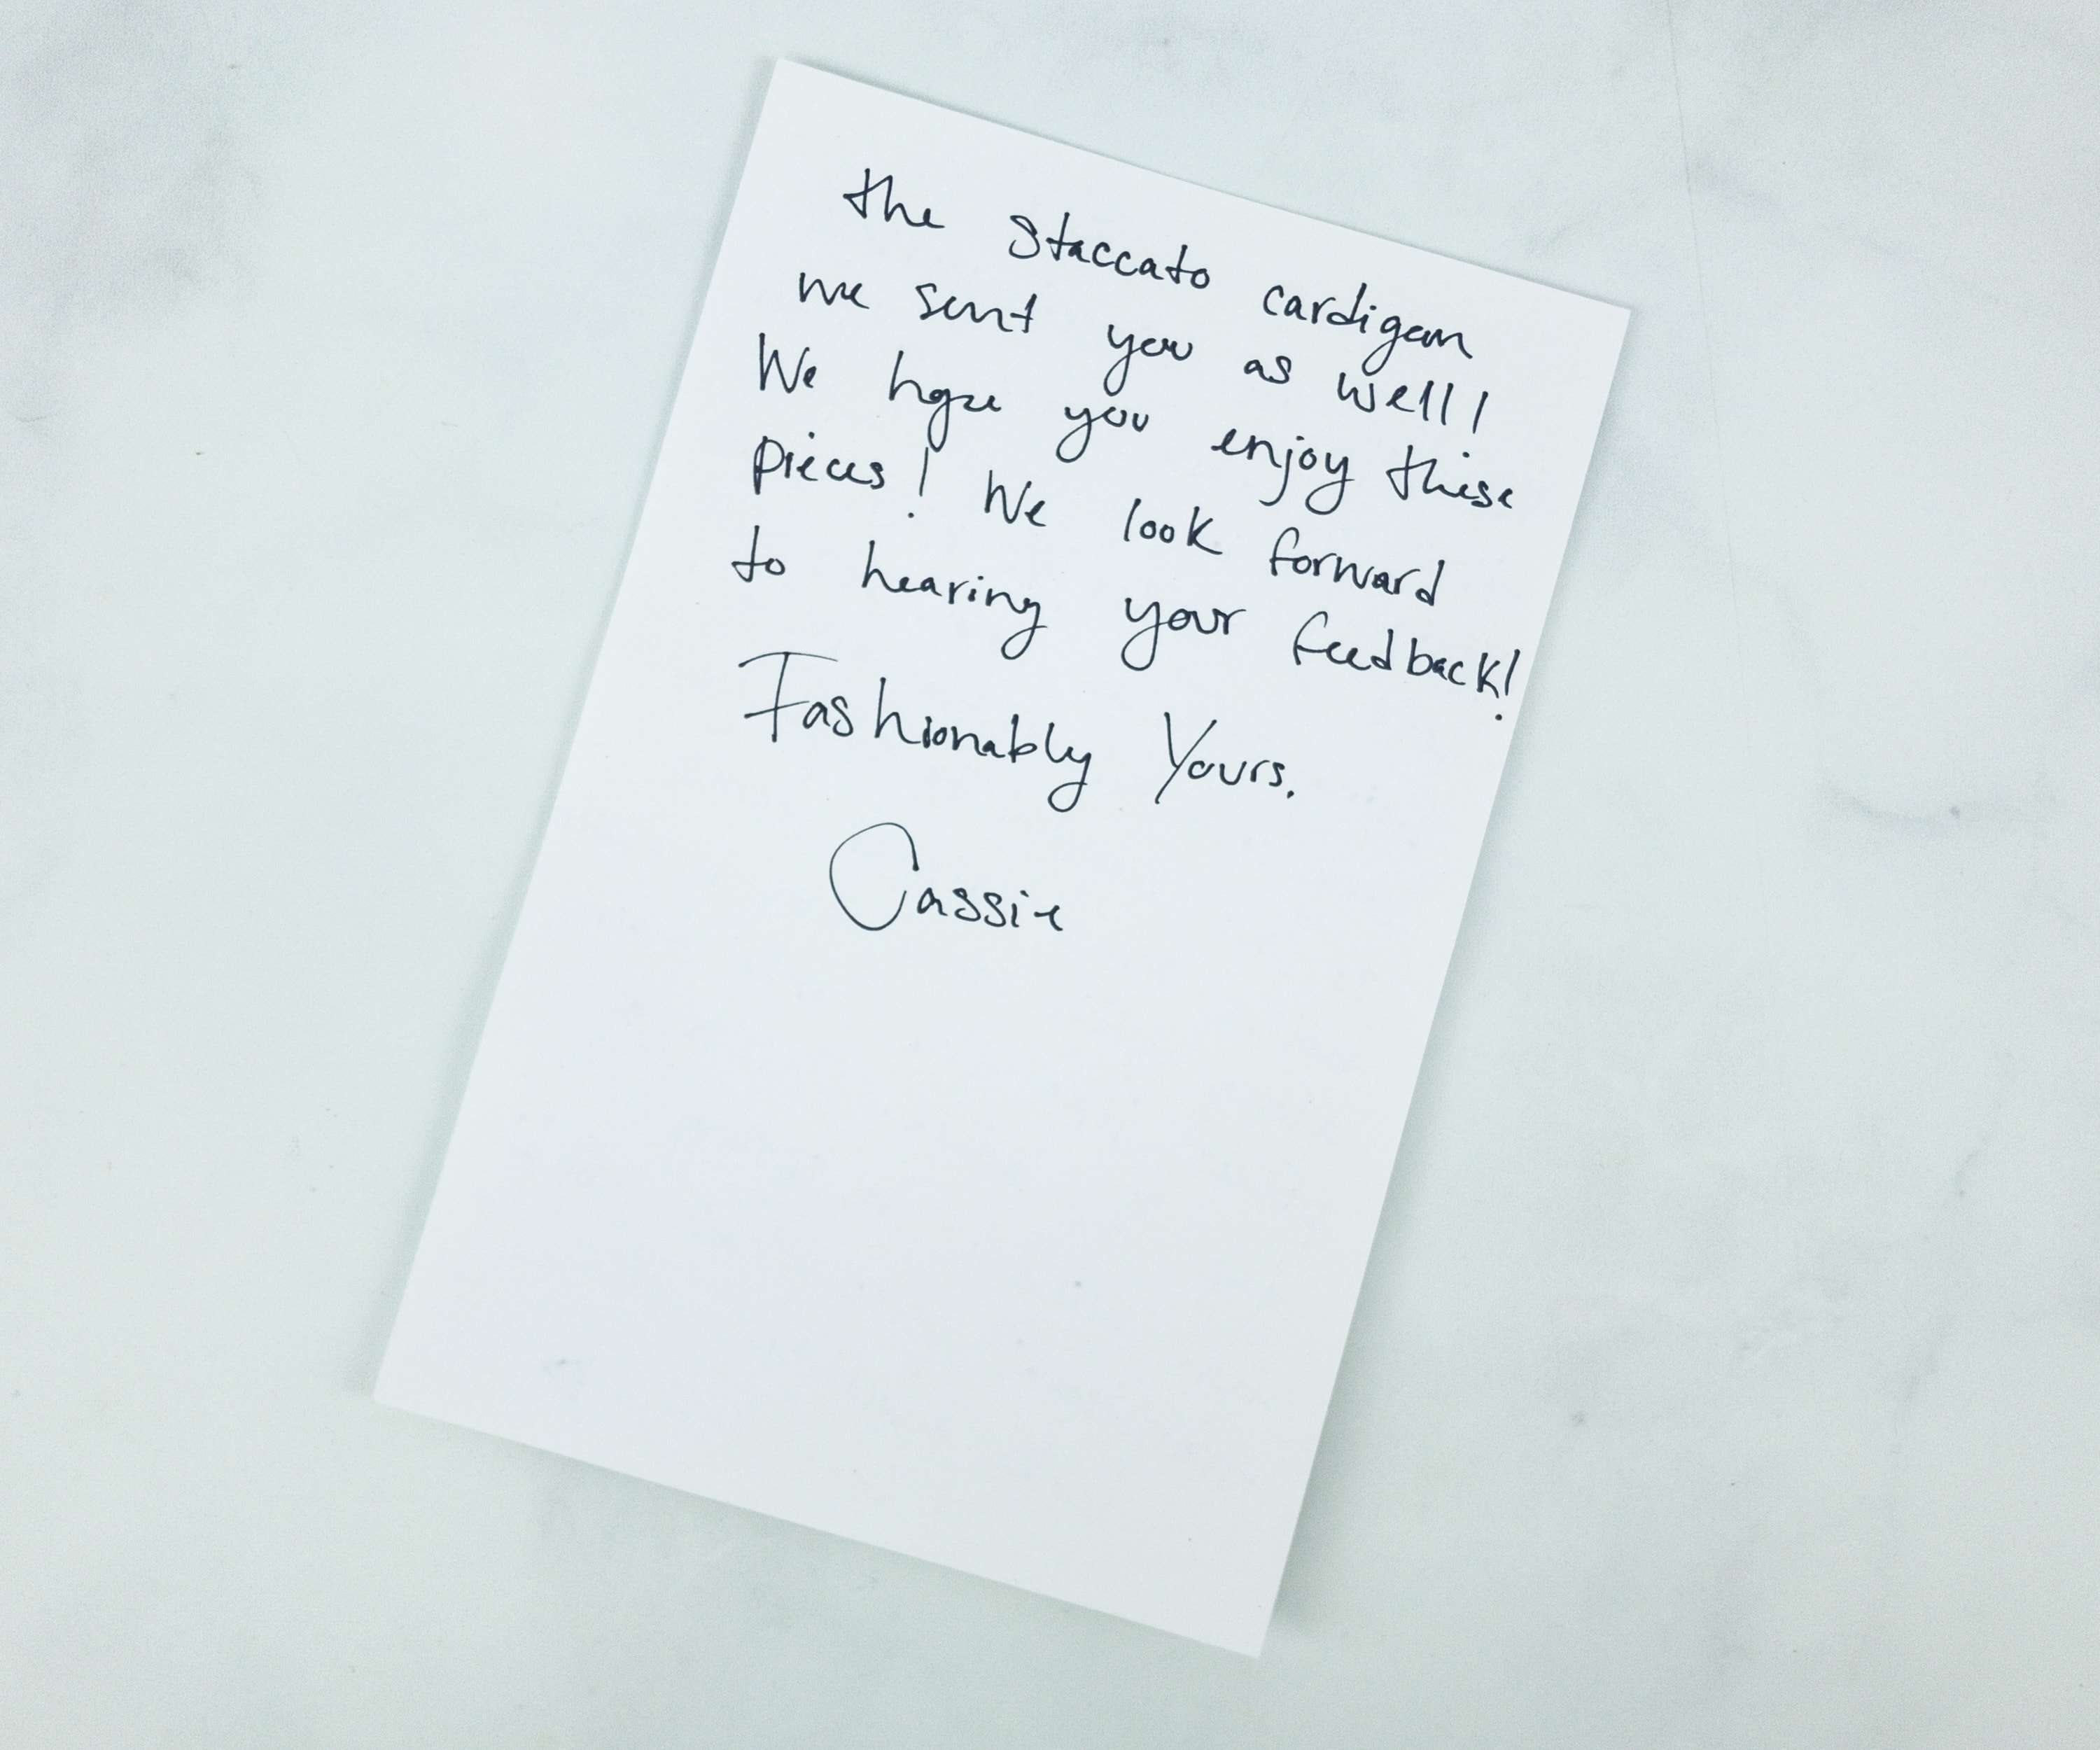 the Staccato cardigan
we sent you as well!
We hope you enjoy these
pieces! We look forward
to hearing your feedback!
Fashionably Yours,
Cassie